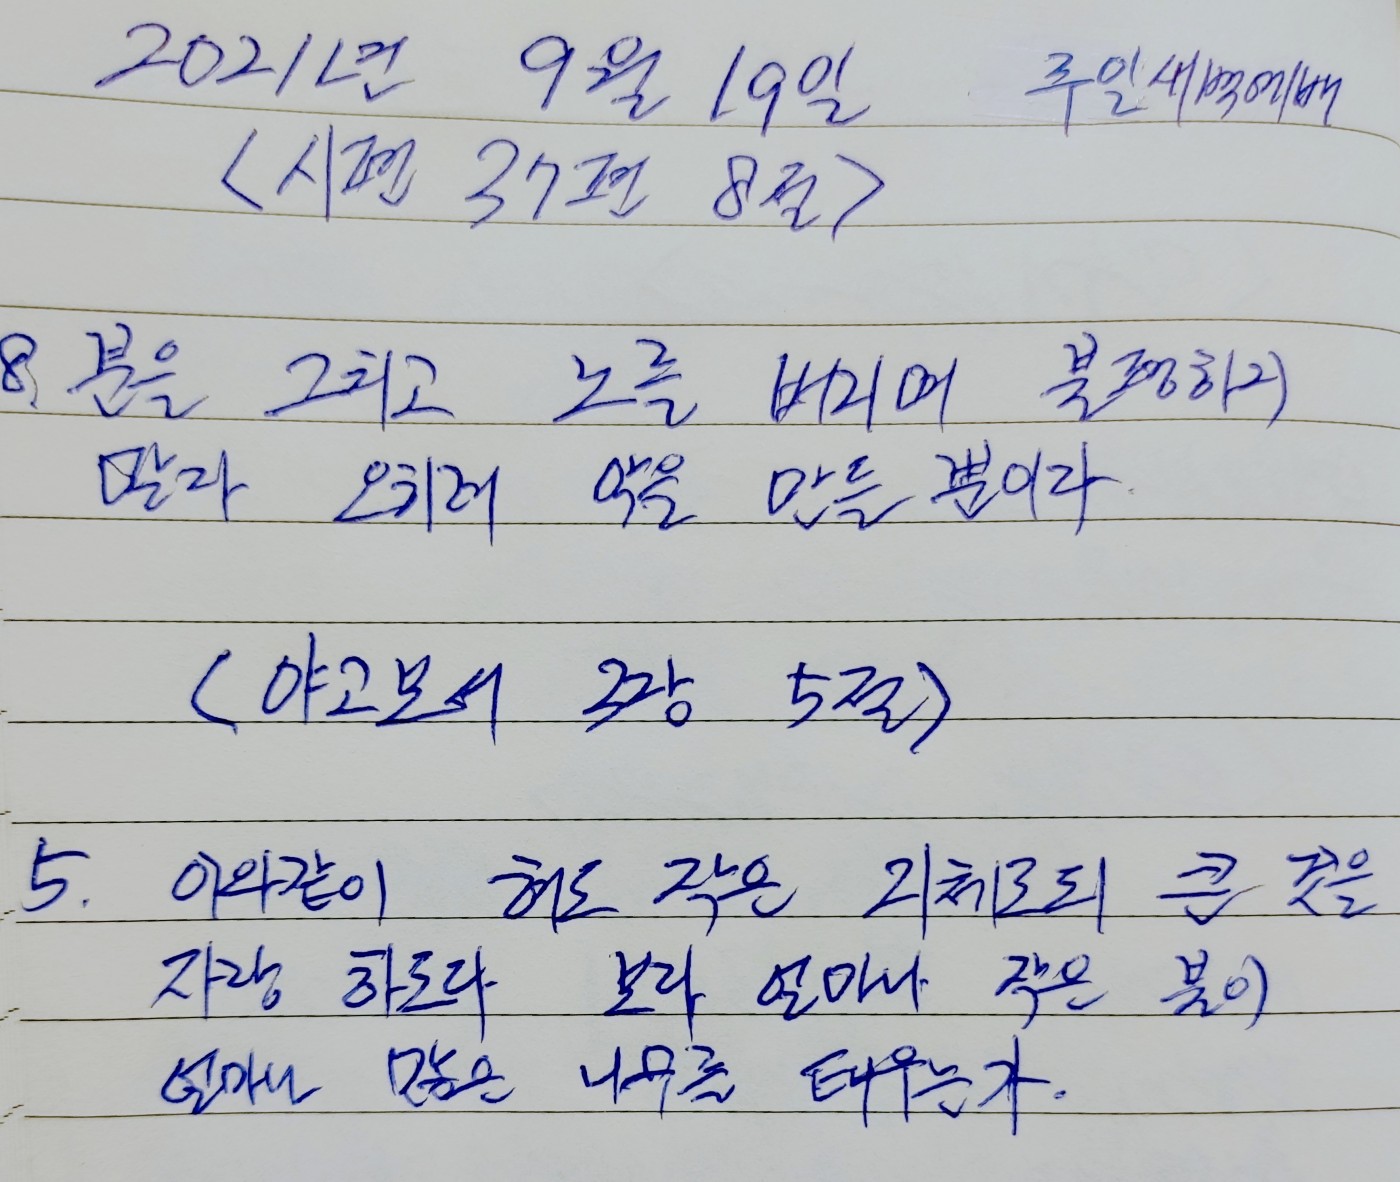 2021년 9월 19일 주일새벽예배
<시편 37편 8절>
8. 분을 그치고 노를 버리며 불평하지
말라 오히려 악을 만들 뿐이라
(야고보서 3장 5절)
5. 이와같이 혀도 작은 지체로되 큰 것을
자랑 하도다 보라 얼마나 작은 불이
얼마나 많은 나무를 태우는가.